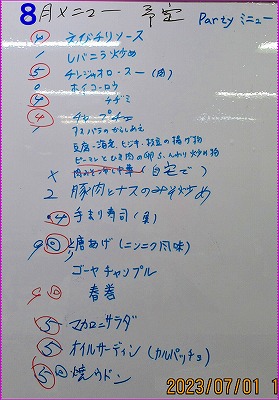 8月メニュー 予定 Partyミニュー
4 えびチリソース
1 レバニラ炒め
5 チンジャオロースー(肉)
0 ホイコーロウ
4 チヂミ
4 チャプチェ
アスパラのからしあえ
豆腐・海老 ヒジキ・枝豆の揚げ物
ピーマンとひき肉の卵ふんわり炒め物
× 肉みそつけ中華(自宅で)
2 豚肉とナスのみそ炒め
4 手まり寿司(魚)
9 回 唐あげ(ニンニク風味)
ゴーヤチャンプル
9 回 春巻
5 マカロニサラダ
5 オイルサーディン(カルパッチョ)
5 回 焼ウドン
2023/07/01 1